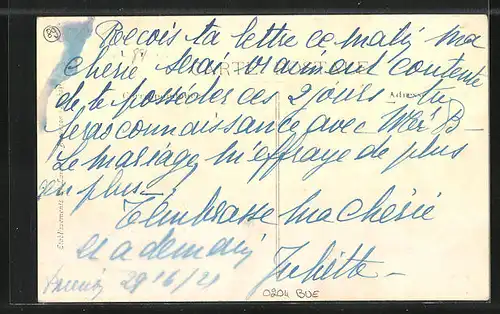 89
Recois ta lettre ce matin ma
cherie serai vraiment contente
CARTE POSTALE
de te posseder ces 2 jours tu
Correspondance
Adresse
feras connaissance avec Mer B-
Le mariage m'effraye de plus
en plus-
T'embrasse ma cherie
et a demain
Juliette-
29/6/21
0204 BUE